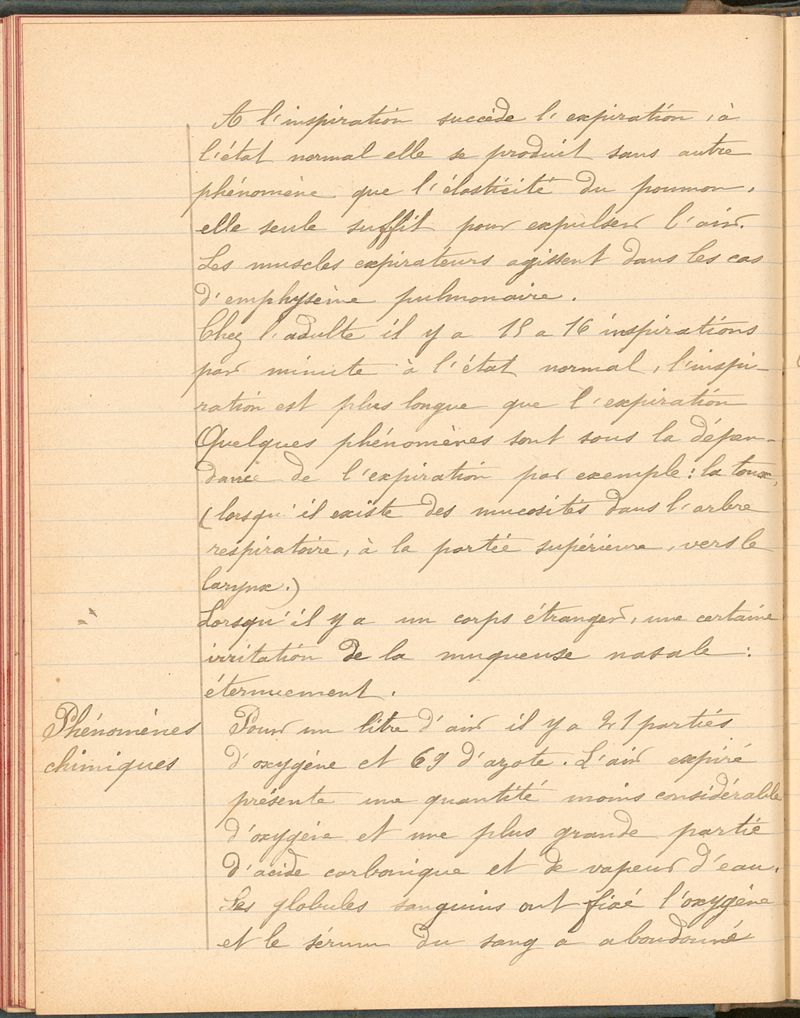 A l'inspiration succède l'expiration, à
l'état normal elle se produit sans autre
phénomène que l'élasticité du poumon,
elle seule suffit pour expulser l'air.
Les muscles expirateurs agissent dans les cas
d'emphysème pulmonaire.
Chez l'adulte il y a 15 a 16 inspirations
par minute à l'état normal, l'inspi-
ration est plus longue que l'expiration
Quelques phénomènes sont sous la dépen-
dance de l'expiration par exemple : la toux,
(lorsqu'il existe des mucosités dans l'arbre
respiratoire, à la partie supérieure, vers le
larynx.)
Lorsqu'il y a un corps étranger, une certaine
irritation de la muqueuse nasale :
éternuement.
Phénomènes
chimiques
Pour un litre d'air il y a 21 parties
d'oxygène et 69 d'azote. L'air expiré
présente une quantité moins considérable
d'oxygène et une plus grande partie
d'acide carbonique et de vapeur d'eau.
Les globules sanguins ont fixé l'oxygène
et le sérum du sang a abandonné